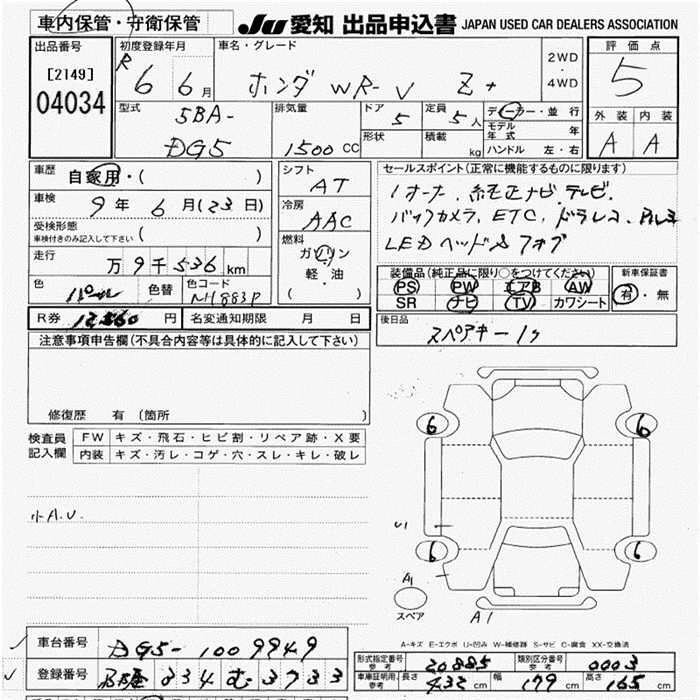 車内保管・守衛保管
JU 愛知 出品申込書 JAPAN USED CAR DEALERS ASSOCIATION
出品番号
[2149]
04034
初度登録年月
R 6 6 月
車名・グレード
ホンダ WR-V Z+
2WD
・
4WD
評価点
5
型式
5BA-
DG5
排気量
1500 CC
ドア
5
形状
定員
5 人
積載
kg
ディーラー・並行
モデル年式 年
ハンドル 左・右
外装 内装
A A
車歴
自家用・( )
車検
9 年 6 月(23 日)
受検形態
車検付きのみ記入して下さい ( )
走行
万 9 千 536 km
色 パール
色替
色コード
NH883P
シフト
AT
冷房
AAC
燃料
ガソリン
軽・油
( )
セールスポイント(正常に機能するものに限ります)
1オーナー、純正ナビ、テレビ、
バックカメラ、ETC、ドラレコ、アルミ
LEDヘッド&フォグ
装備品(純正品に限り○をつけてください)
PS PW エアB AW
SR ナビ TV カワシート
新車保証書
有・無
R券 12,560 円
名変通知期限 月 日
後日品
スペアキー1ヶ
注意事項申告欄(不具合内容等は具体的に記入して下さい)
修復歴 有 (箇所 )
検査員
記入欄
FW キズ・飛石・ヒビ割・リペア跡・X要
内装 キズ・汚レ・コゲ・穴・スレ・キレ・破レ
小A.U.
6 6
U1
6 6
A1
スペア
A1
A-キズ E-エクボ U-凹み W-補修跡 S-サビ C-腐食 XX-交換済
車台番号 DG5-1009949
登録番号 334 む 3733
形式指定番号
参考
20885
類別区分番号
参考
0003
車庫証明用
参考
長さ 432 cm 幅 179 cm 高さ 165 cm